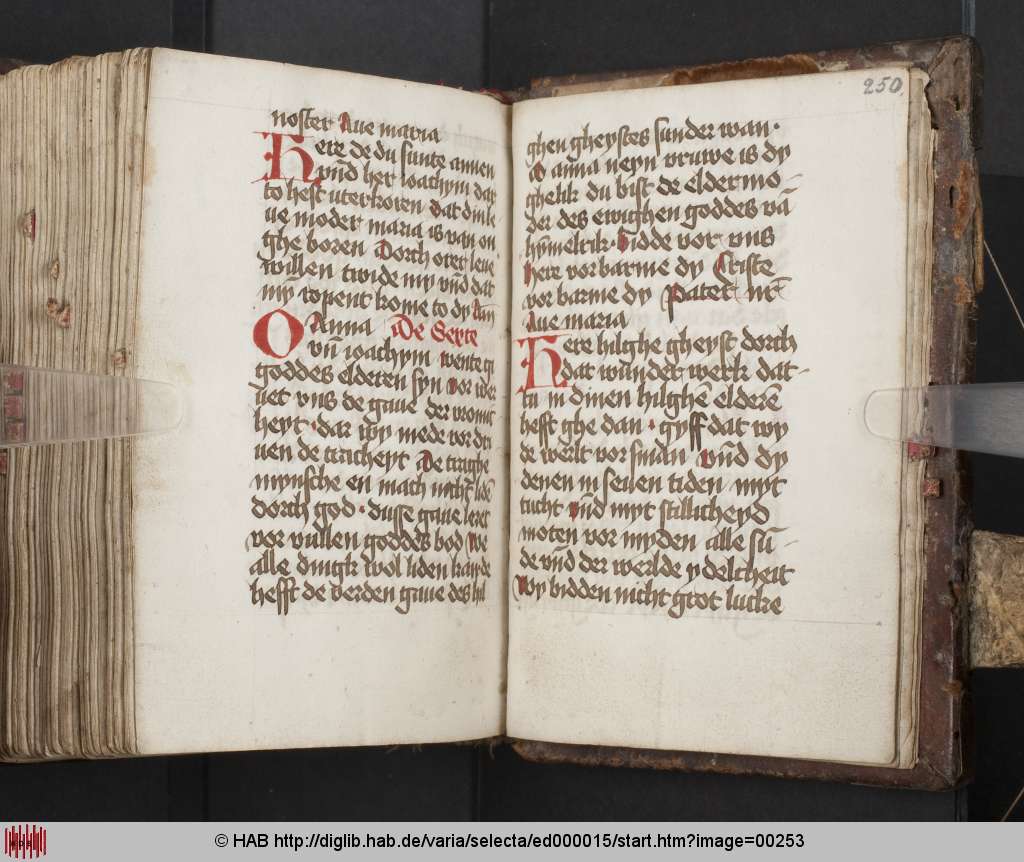 noster Aue maria
Here de du sunte annen
vnd her ioachym dar
to hest uterkoren dat din le
ue moder maria is van on
ghe boren Dorch orer leue
willen twide my vnd dat
my ropent kome to dy Am̄
O Anna De Sexte
vn̄ ioachym wente gi
goddes elderen syn vor wer
uet vns de gaue der vromic
heyt dar wy mede vor dri
uen de tracheyt De traghe
mynsche en mach nicht lidē
dorch god dusse gaue leret
vor vullen goddes bod We
alle dingk wol liden kan de
hefft de verden gaue des hil
250
ghen gheystes sunder wan
O anna neyn vruwe is dy
ghelik du bist de elder mo
der des ewighen goddes vā
hymelrik Bidde vor vns
here vorbarme dy Criste
vor barme dy Pater nr̄
Aue maria
Here hilghe gheyst dorch
dat wunder werk dat
tu in dinen hilghē elderē
hefft ghe dan gyff dat wy
de werlt vor sman vnd dy
denen in seuen tiden myt
tucht vnd myt stillicheyd
moten vor myden alle sū
de vnd der werlde ydelcheit
Wy bidden nicht grot lucke
© HAB http://diglib.hab.de/varia/selecta/ed000015/start.htm?image=00253